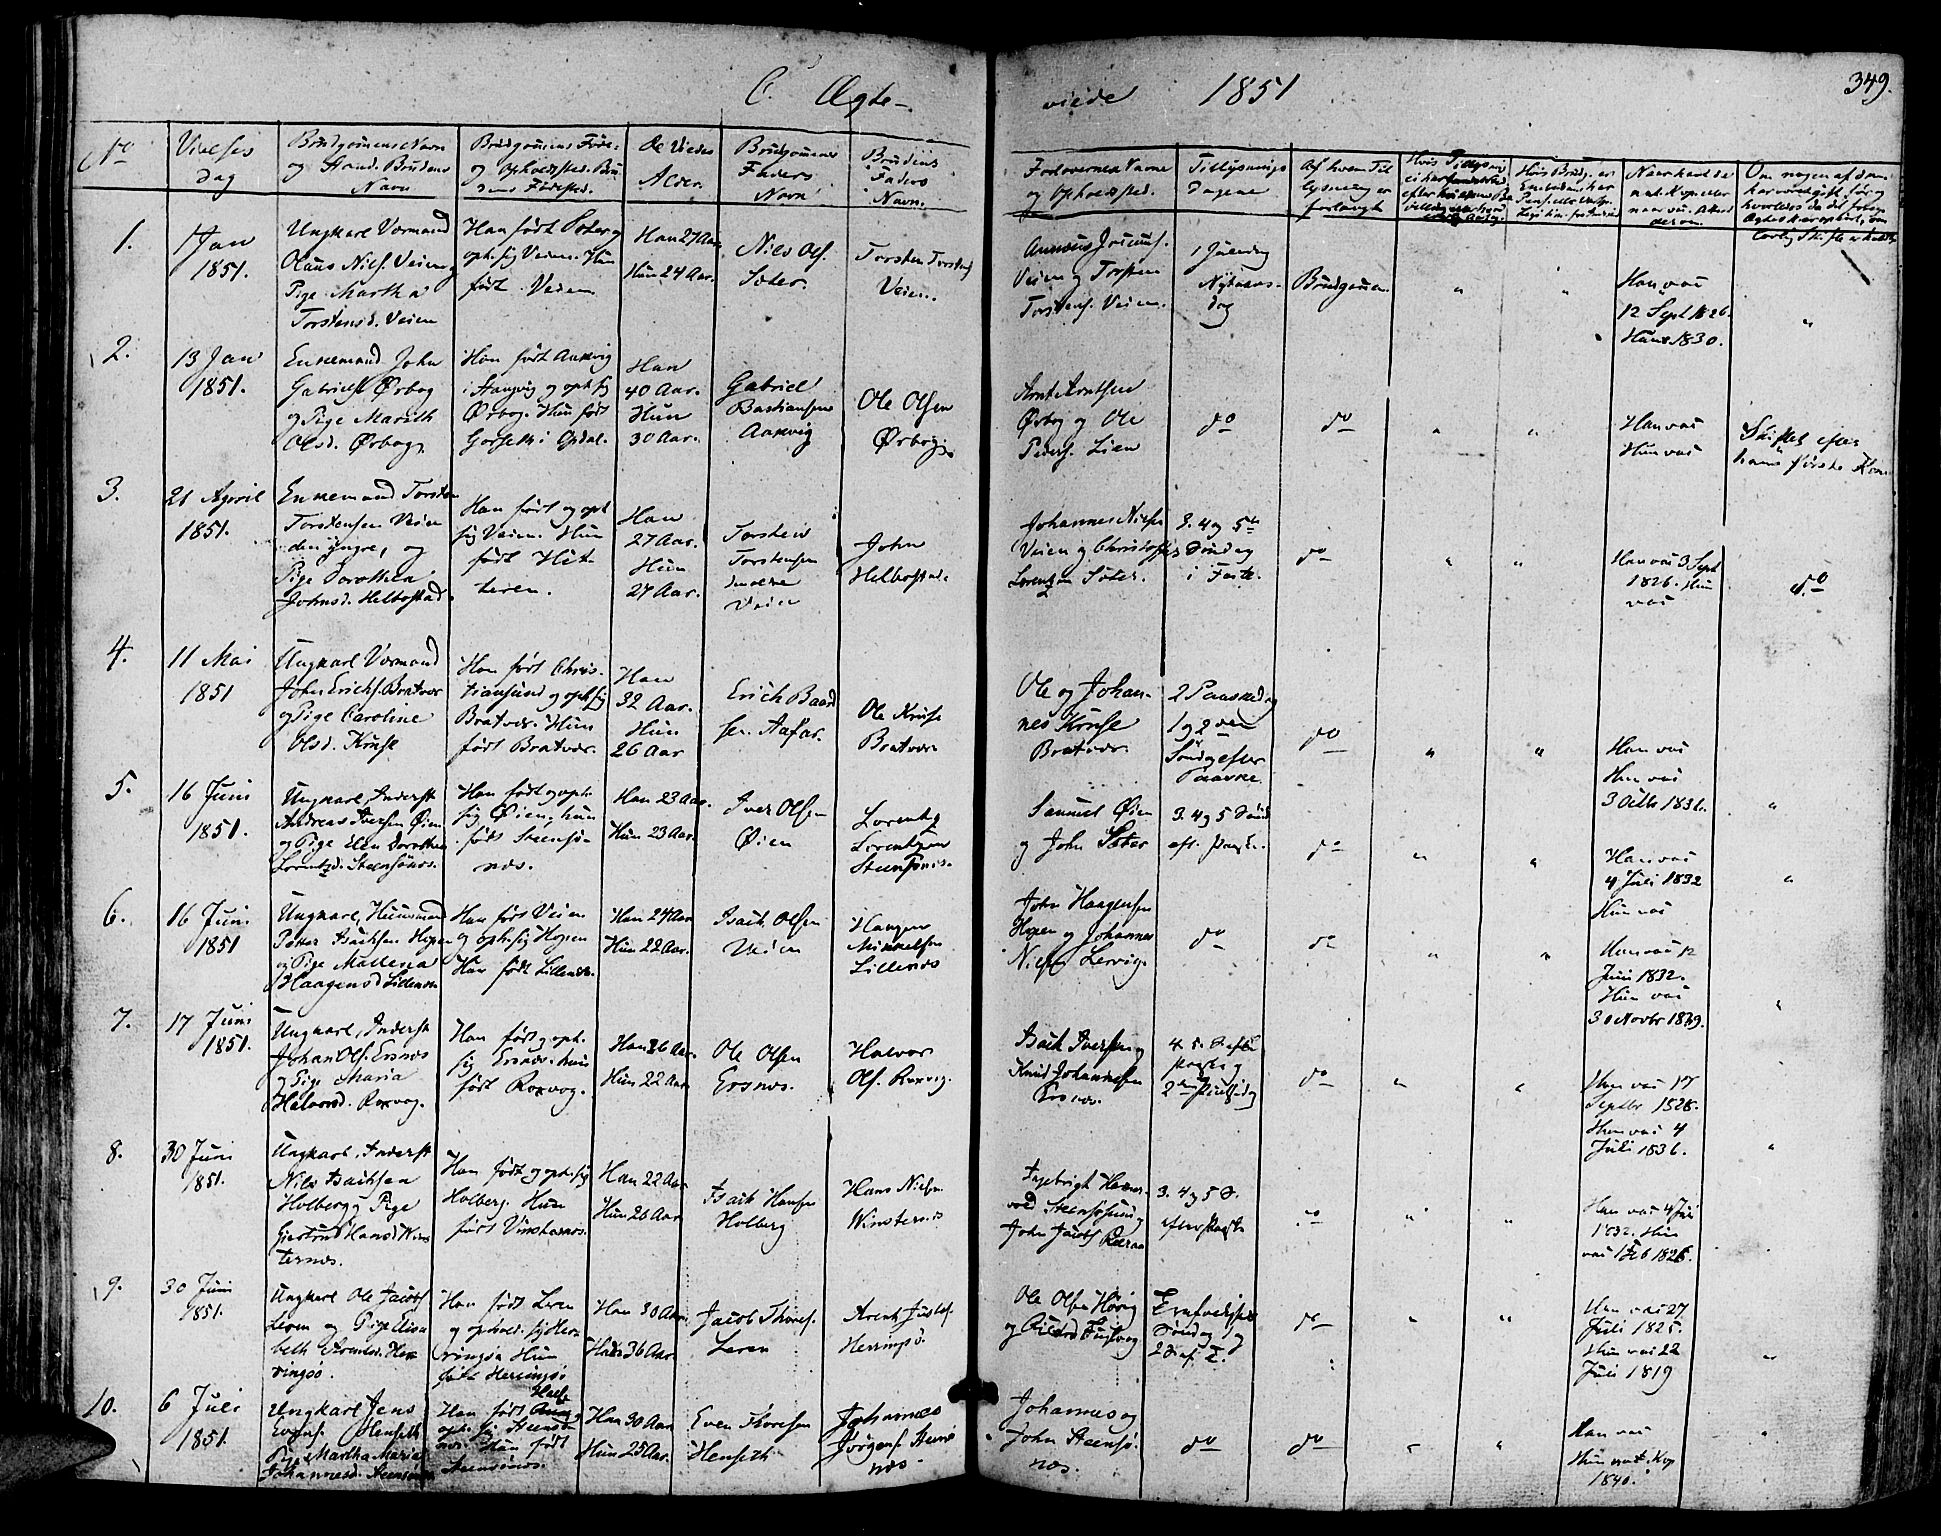 C. Ægte-
viede 1851
349.
No
Vielses
dag
Brudgommens Navn
og Stand. Brudens
Navn
Brudgommens Føde-
og Opholdsted. Bru-
dens Fødested.
De Viedes
Alder.
Brudgommens
Faders
Navn
Brudens
Faders
Navn.
Forlovernes Navne
og Opholdsted.
Tillysnings
Dagene
Af hvem Til
lysning er
forlangt
1.
1 Jan
1851.
Ungkarl Vormand
Olaus Niels. Veien og
Pige Martha
Torstensd. Veien
Han født Soter og
oph. sig Veien. Hun
født Veien
Han 27 Aar
Hun 24 Aar.
Niels Ols.
Soter.
Torsten Torstens
Veien.
Veien og Torsten
Torstens. Veien.
1 Juledag
Nytaars-
dag
Brudgommen
"
"
Han vac
12 Sept 1826.
Hun 1830.
"
2.
13 Jan
1851.
Enkemand John
Gabriels Ørbog
og Pige Marith
Olsd. Ørbog.
Han født Aakvig
i Stangvig og oph sig
Ørbog. Hun født
i Opdal.
Han
40 Aar.
Hun
30 Aar.
Gabriel
Bastiansen
Aakvig
Ole Olsen
Ørbog.
Arnt Arntsen
Ørbog og Ole
Peders. Lien
do
do
"
"
Han vac
Hun vac
Skiftet efter
hans første Kone
3.
21 April
1851.
Enkemand Torsten
Torstensen Veien
den yngre, og
Pige Dorothea
Johnsd. Helbostad.
Han født og oph
sig Veien. Hun
født Hit-
teren.
Han
27 Aar.
Hun
27 Aar.
Torsten
Torstensen
Veien
John
Helbostad.
Johannes Niels
Veien og Christopher
Lorentzen Soter.
3. 4 og 5te
Søndag
i Faste.
do
"
"
Han vac 3 Sept
1826. Hun
vac
do
4.
11 Mai
1851
Ungkarl Vormand
John Erichs. Bratvær
og Pige Caroline
Olsd. Kruse
Han født Chris-
tiansund og oph sig
Bratvær. Hun
født Bratvær.
Han
32 Aar.
Hun
26 Aar
Erich Baard
sen. Aafar.
Ole Kruse
Bratvær
Ole og Johan-
nes Kruse
Bratvær.
2 Paaskedag
1 og 2den
Søndag efter
Paaske
do
"
"
Han vac
Hun vac
3 Octbr 1832.
"
5.
16 Juni
1851.
Ungkarl, Inderst
Andreas Iversen Øien
og Pige Elen Dorothea
Lorentzd. Steensønæs.
Han født og oph.
sig Øien, hun
født Steensø-
næs.
Han 23 Aar.
Hun 23 Aar.
Iver Olsen
Øien
Lorentz
Lorentzen
Steensønæs.
Samuel Øien
og John Soter
3. 4 og 5 Sønd
eft. Paaske.
do
"
"
Han vac
4 Juli 1832
Hun vac
"
6.
16 Juni
1851
Ungkarl, Huusmand
Petter Isachsen Hopen
og Pige Mallena
Haagensd Lillenæs
Han født Veien
og oph. sig Hopen
Hun født Lillenæs.
Han 24 Aar
Hun 22 Aar.
Isach Olsen
Veien
Haagen
Mikkelsen
Lillenæs
John Haagensen
Hopen og Johannes
Niels Lervig.
do
do
"
"
Han vac 12
Juni 1832.
Hun vac
30 Novbr 1839.
"
7.
17 Juni
1851.
Ungkarl, Inderst
Johan Ols. Ersnæs
og Pige Maria
Halvorsd. Roxvog.
Han født og oph.
sig Ersnæs. hun
født Roxvog.
Han 26 Aar.
Hun 22 Aar
Ole Olsen
Ersnæs.
Halvor
Ols. Roxvog.
Isach Iversen og
Knud Johannesen
Ersnæs.
4. 5. S efter
Paaske og
2den Pintsedag
do
"
"
Han vac 17
Septbr 1826.
Hun vac 4
Juli 1836.
"
8.
30 Juni
1851.
Ungkarl, Inderst
Niels Isachsen
Holberg og Pige
Giertrud Hansd Vins
ternæs.
Han født og oph. sig
Holberg. Hun
født Vinsternæs.
Han 22 Aar
Hun 26 Aar
Isach Hansen
Holberg
Hans Nielsen
Winsternæs
John Jacobs
3. 4 og 5 S.
efter Paaske
do
"
"
Han vac 4 Juli
1832. Hun
vac 1 Feb 1826.
"
9.
30 Juni
1851.
Ungkarl Ole Jacobs
Leren og Pige Elisa
beth Arentsd. Her
ringsø.
Han født Leren
og ophold. sig Her-
ringsø Hun
født Herringsø
Han 30 Aar.
Hun 36 Aar.
Jacob Thores.
Leren
Arent Justs.
Herringsø
Ole Olsen
Søndag og
do
"
"
Han vac 27
Juli 1825.
Hun vac 22
Juli 1819
"
10.
6 Juli
1851.
Ungkarl Jens
Evens. Henseth
Pige Martha Maria
Johannesd. Steensønæs
Han født
oph. sig Steensø
næs. Hun født
Steensønæs.
Han 30 Aar
Hun 25 Aar.
Even Thoresen
Henseth
Johannes
Jørgens. Steensø
næs.
Johannes og
John Steensø-
næs.
do
do
"
"
Han vac
Hun nat. Kop
1840.
"